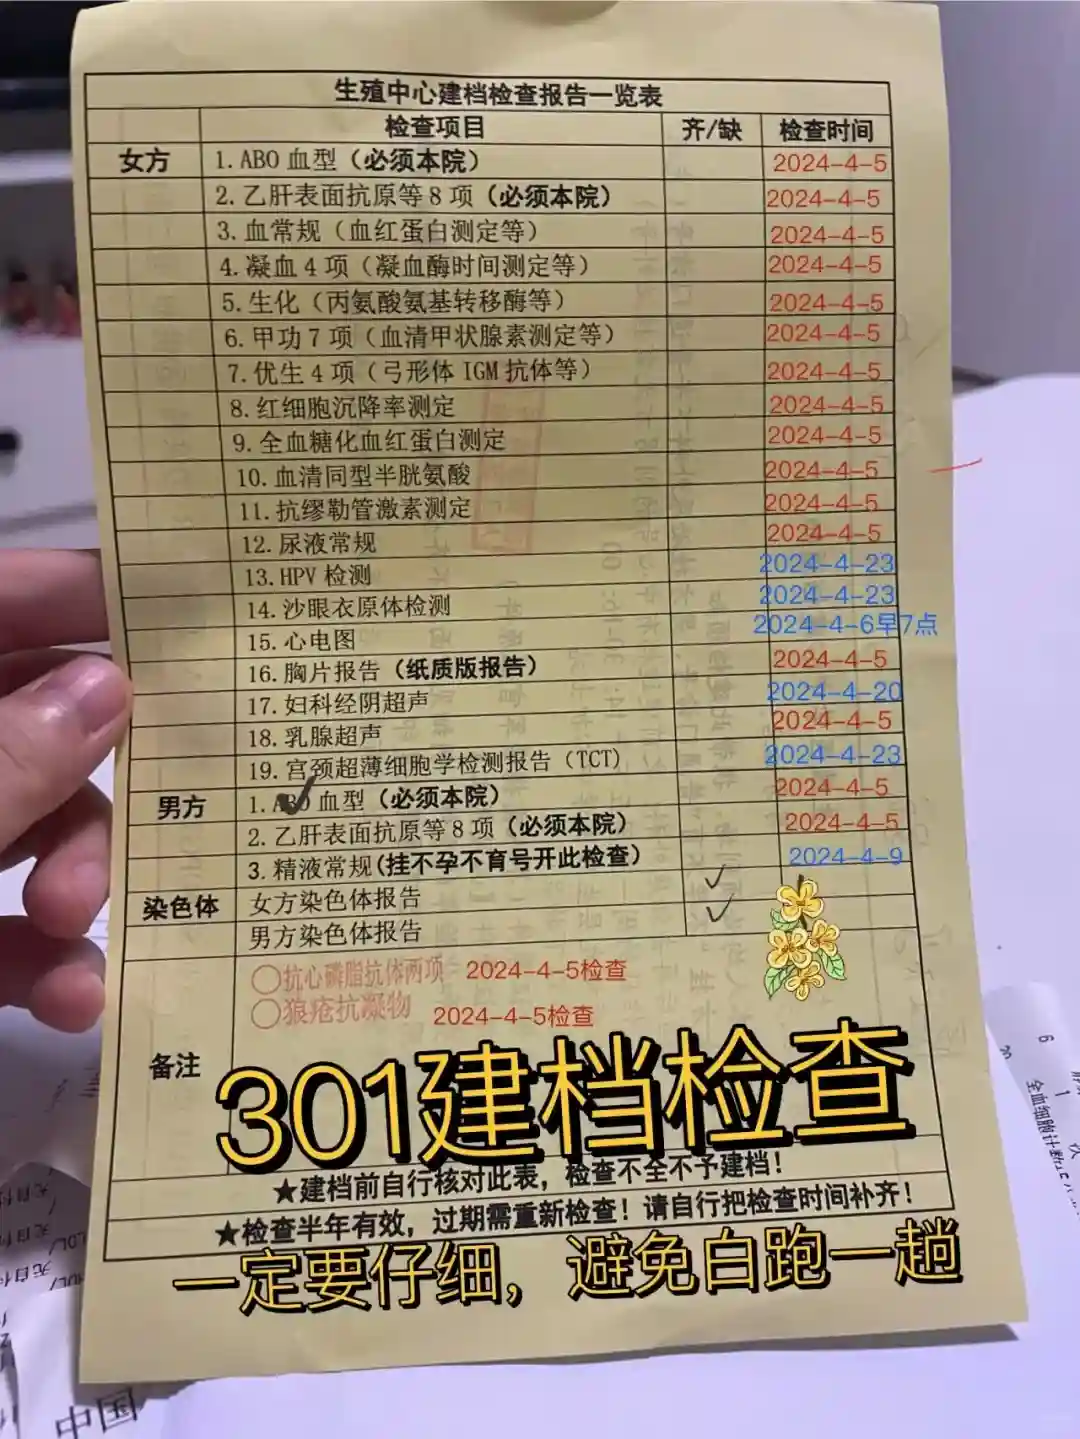 生殖中心建档检查报告一览表
检查项目 齐/缺 检查时间
女方 1.ABO 血型（必须本院） 2024-4-5
2.乙肝表面抗原等 8 项（必须本院） 2024-4-5
3.血常规（血红蛋白测定等） 2024-4-5
4.凝血 4 项（凝血酶时间测定等） 2024-4-5
5.生化（丙氨酸氨基转移酶等） 2024-4-5
6.甲功 7 项（血清甲状腺素测定等） 2024-4-5
7.优生 4 项（弓形体 IGM 抗体等） 2024-4-5
8.红细胞沉降率测定 2024-4-5
9.全血糖化血红蛋白测定 2024-4-5
10.血清同型半胱氨酸 2024-4-5
11.抗缪勒管激素测定 2024-4-5
12.尿液常规 2024-4-5
13.HPV 检测 2024-4-23
14.沙眼衣原体检测 2024-4-23
15.心电图 2024-4-6早7点
16.胸片报告（纸质版报告） 2024-4-5
17.妇科经阴超声 2024-4-20
18.乳腺超声 2024-4-5
19.宫颈超薄细胞学检测报告（TCT） 2024-4-23
男方 1.ABO 血型（必须本院） 2024-4-5
2.乙肝表面抗原等 8 项（必须本院） 2024-4-5
3.精液常规(挂不孕不育号开此检查） 2024-4-9
染色体 女方染色体报告 ✓
男方染色体报告 ✓
备注 ○抗心磷脂抗体两项 2024-4-5检查
○狼疮抗凝物 2024-4-5检查
301建档检查
★建档前自行核对此表，检查不全不予建档！
★检查半年有效，过期需重新检查！请自行把检查时间补齐！
一定要仔细，避免白跑一趟
中国
全血细胞计数